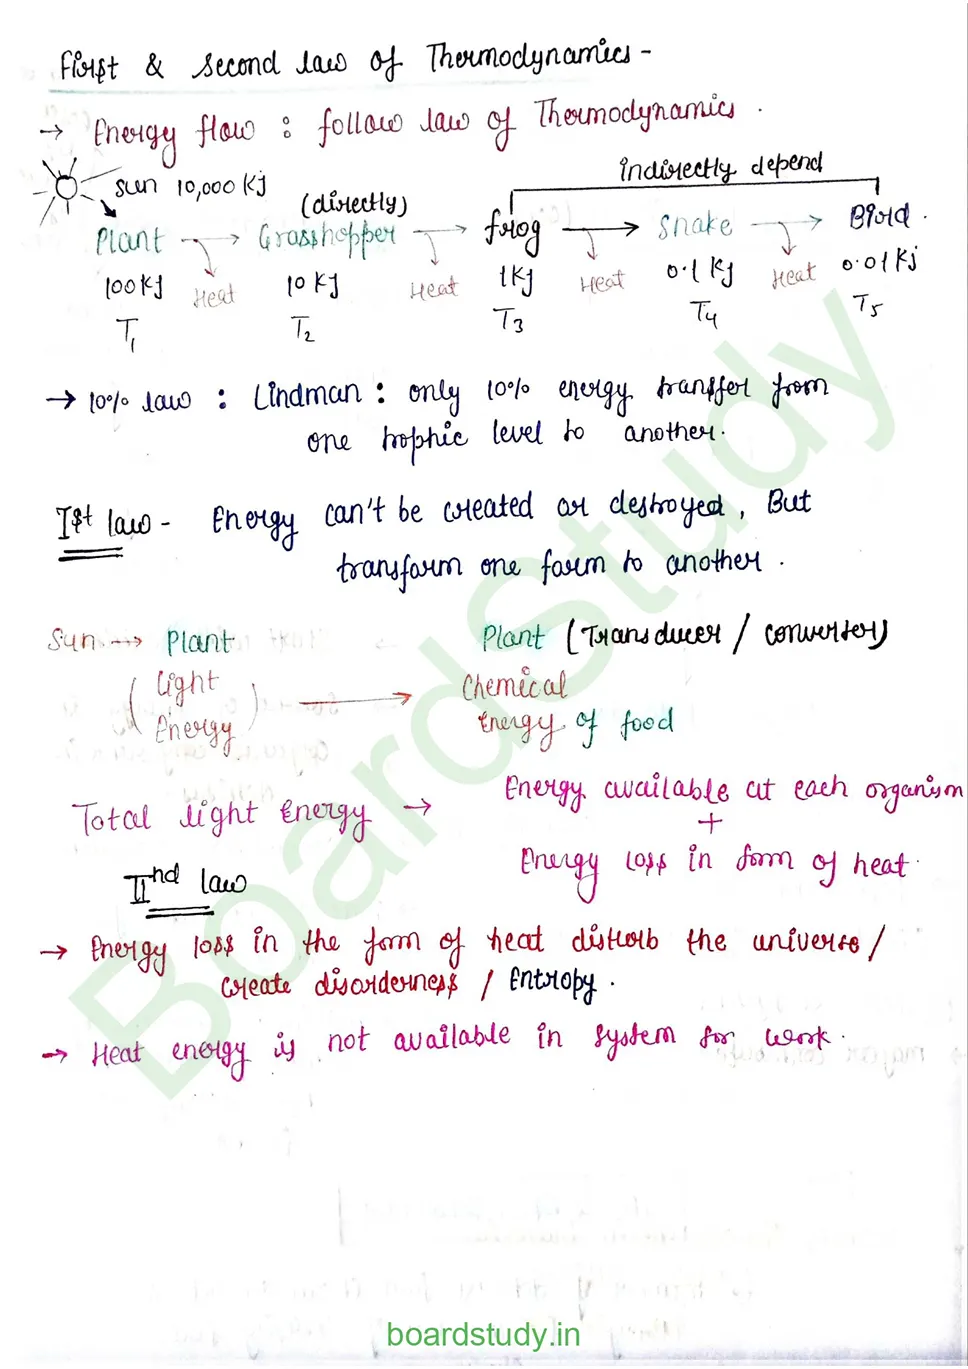 First & Second law of Thermodynamics -
→ Energy flow : follow law of Thermodynamics .
indirectly depend
Sun 10,000 Kj
(directly)
Plant → Grasshopper → frog → Snake → Bird .
Heat Heat Heat Heat
100 Kj 10 Kj 1Kj 0.1 Kj 0.01 Kj
T1 T2 T3 T4 T5
→ 10% law : Lindman : only 10% energy transfer from
one trophic level to another.
Ist law - Energy can't be created or destroyed, But
transform one form to another .
Sun → Plant Plant (Transducer / converter)
(Light Energy) → Chemical
Energy of food
Total light Energy → Energy available at each organism
+
Energy loss in form of heat.
IInd law
→ Energy loss in the form of heat disturb the universe /
create disorderness / Entropy .
→ Heat energy is not available in system for work .
BoardStudy
boardstudy.in